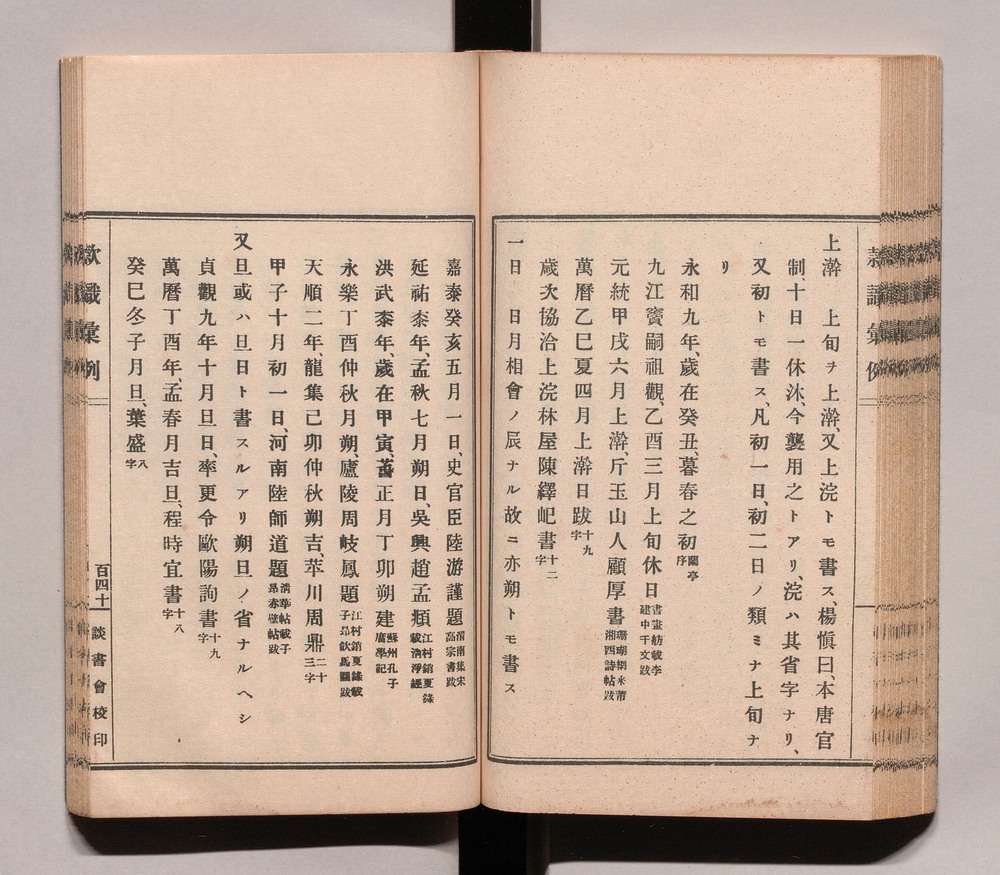 上澣 上旬ヲ上澣、又上浣トモ書ス、楊愼曰、本唐官
制、十日一休沐、今襲用之トアリ、浣ハ其省字ナリ、
又初トモ書ス、凡初一日、初二日ノ類ミナ上旬ナ
リ
永和九年、歲在癸丑、暮春之初 蘭亭序
九江竇嗣祖觀、乙酉三月上旬休日 書畫舫載李建中千文跋
元統甲戌六月上澣、斤玉山人顧厚書 珊瑚網米芾湘西詩帖跋
萬曆乙巳夏四月上澣日跋 十九字
歲次協洽上浣林屋陳繹屺書 十二字
一日 日月相會ノ辰ナル故ニ亦朔トモ書ス
嘉泰癸亥五月一日、史官臣陸游謹題 渭南集宋高宗書跋
延祐柒年、孟秋七月朔日、吳興趙孟頫 江村銷夏錄載淸淨經
洪武柒年、歲在甲寅、春正月丁卯朔建 蘇州孔子廟學記
永樂丁酉仲秋月朔、廬陵周岐鳳題 江村銷夏錄載子昂飮馬圖跋
天順二年、龍集己卯仲秋朔吉、苹川周鼎 二十三字
甲子十月初一日、河南陸師道題 淸華帖載子昂赤壁帖跋
又旦或ハ旦日ト書スルアリ朔旦ノ省ナルヘシ
貞觀九年十月旦日、率更令歐陽詢書 十九字
萬曆丁酉年、孟春月吉旦、程時宜書 十八字
癸巳冬子月旦、葉盛 八字
款識彙例
百四十
談書會校印